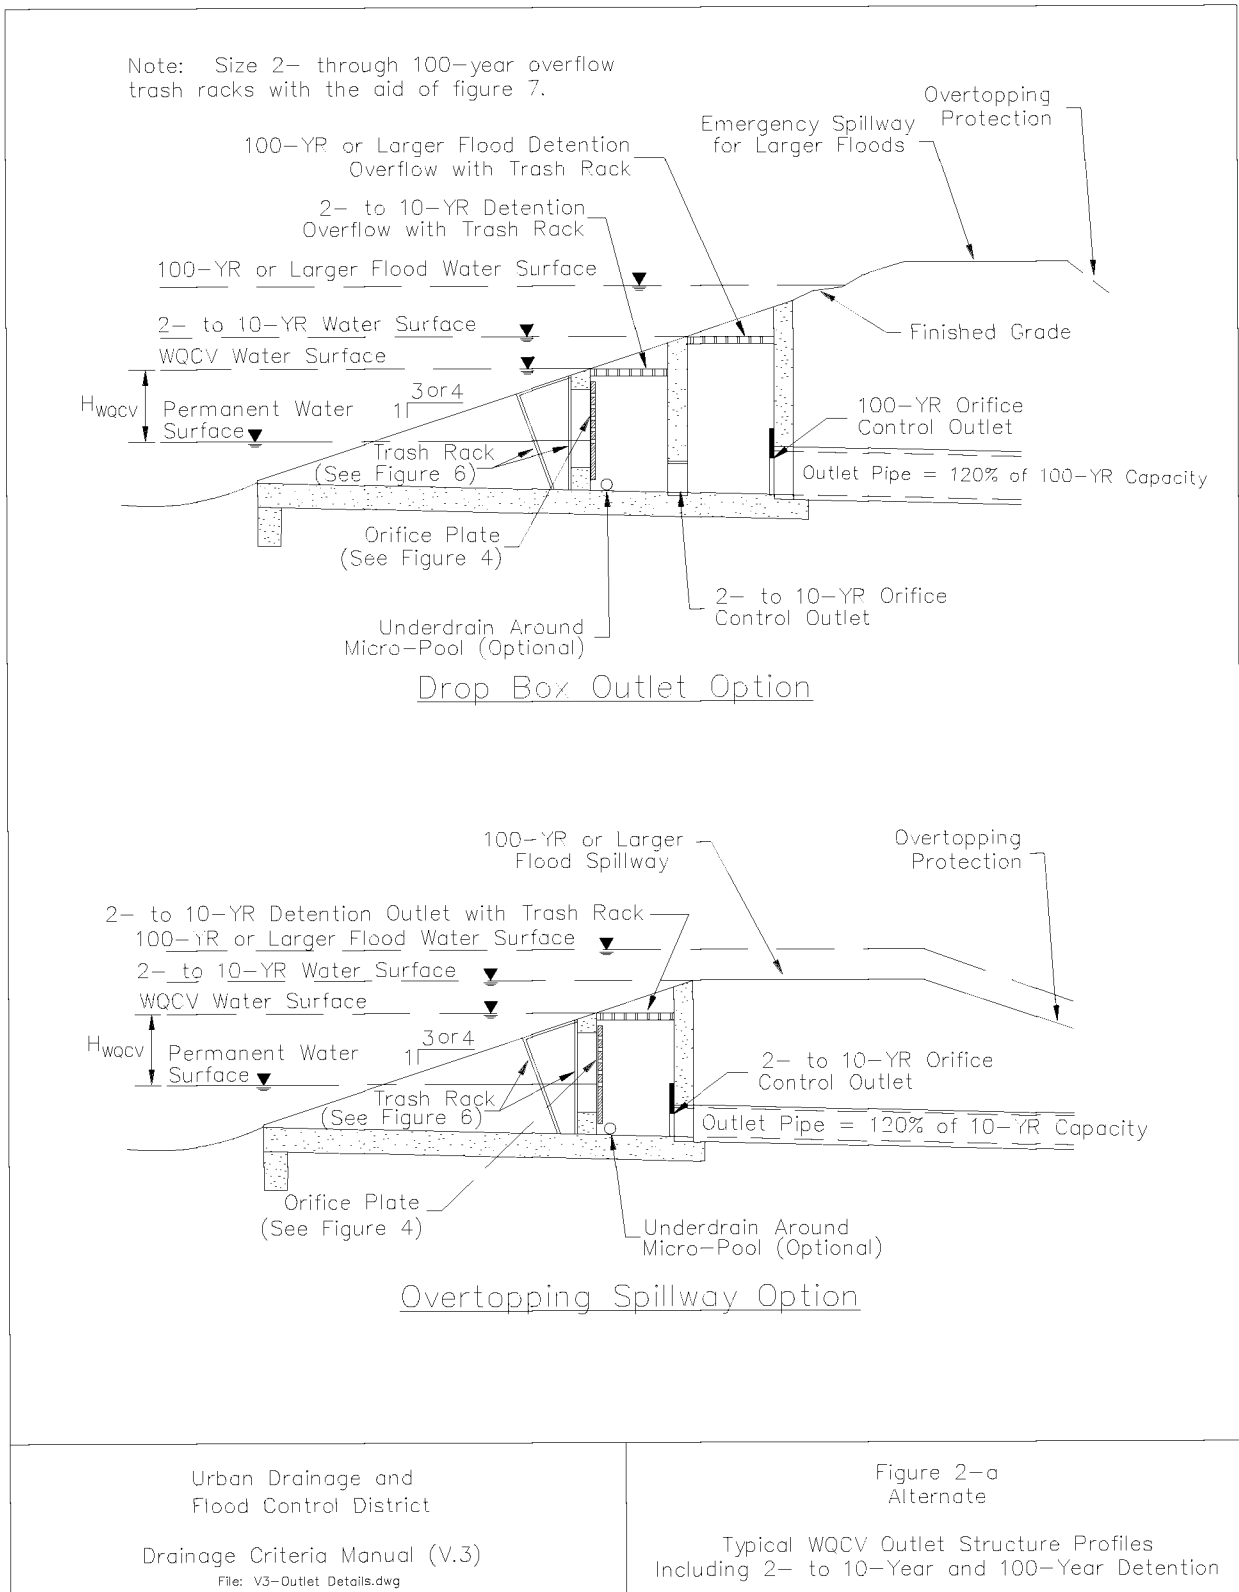 Note: Size 2- through 100-year overflow
trash racks with the aid of figure 7.
Overtopping
Protection
Emergency Spillway
for Larger Floods
100-YR or Larger Flood Detention
Overflow with Trash Rack
2- to 10-YR Detention
Overflow with Trash Rack
100-YR or Larger Flood Water Surface
2- to 10-YR Water Surface
Finished Grade
WQCV Water Surface
3 or 4
1
HWQCV
Permanent Water
Surface
100-YR Orifice
Control Outlet
Trash Rack
(See Figure 6)
Outlet Pipe = 120% of 100-YR Capacity
Orifice Plate
(See Figure 4)
2- to 10-YR Orifice
Control Outlet
Underdrain Around
Micro-Pool (Optional)
Drop Box Outlet Option
100-YR or Larger
Flood Spillway
Overtopping
Protection
2- to 10-YR Detention Outlet with Trash Rack
100-YR or Larger Flood Water Surface
2- to 10-YR Water Surface
WQCV Water Surface
3 or 4
1
HWQCV
Permanent Water
Surface
2- to 10-YR Orifice
Control Outlet
Trash Rack
(See Figure 6)
Outlet Pipe = 120% of 10-YR Capacity
Orifice Plate
(See Figure 4)
Underdrain Around
Micro-Pool (Optional)
Overtopping Spillway Option
Urban Drainage and
Flood Control District
Drainage Criteria Manual (V.3)
File: V3-Outlet Details.dwg
Figure 2-a
Alternate
Typical WQCV Outlet Structure Profiles
Including 2- to 10-Year and 100-Year Detention